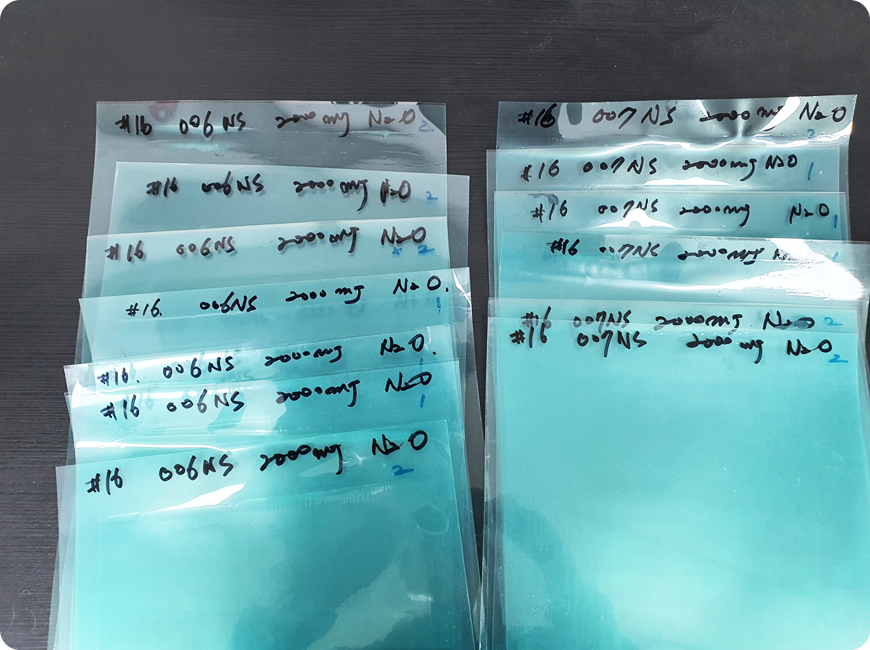 #16 006NS 2000mJ N20
2
#16 006NS 2000mJ N20
2
#16 006NS 2000mJ N20
2
#16. 006NS 2000mJ N20.
1
#16. 006NS 2000mJ N20.
1
#16 006NS 2000mJ N20
1
#16 006NS 2000mJ N20
2
#16 007NS 2000mJ N20
2
#16 007NS 2000mJ N20
1
#16 007NS 2000mJ N20
1
#16 007NS 2000mJ
1
#16 007NS 2000mJ N20
2
#16 007NS 2000mJ N20
2